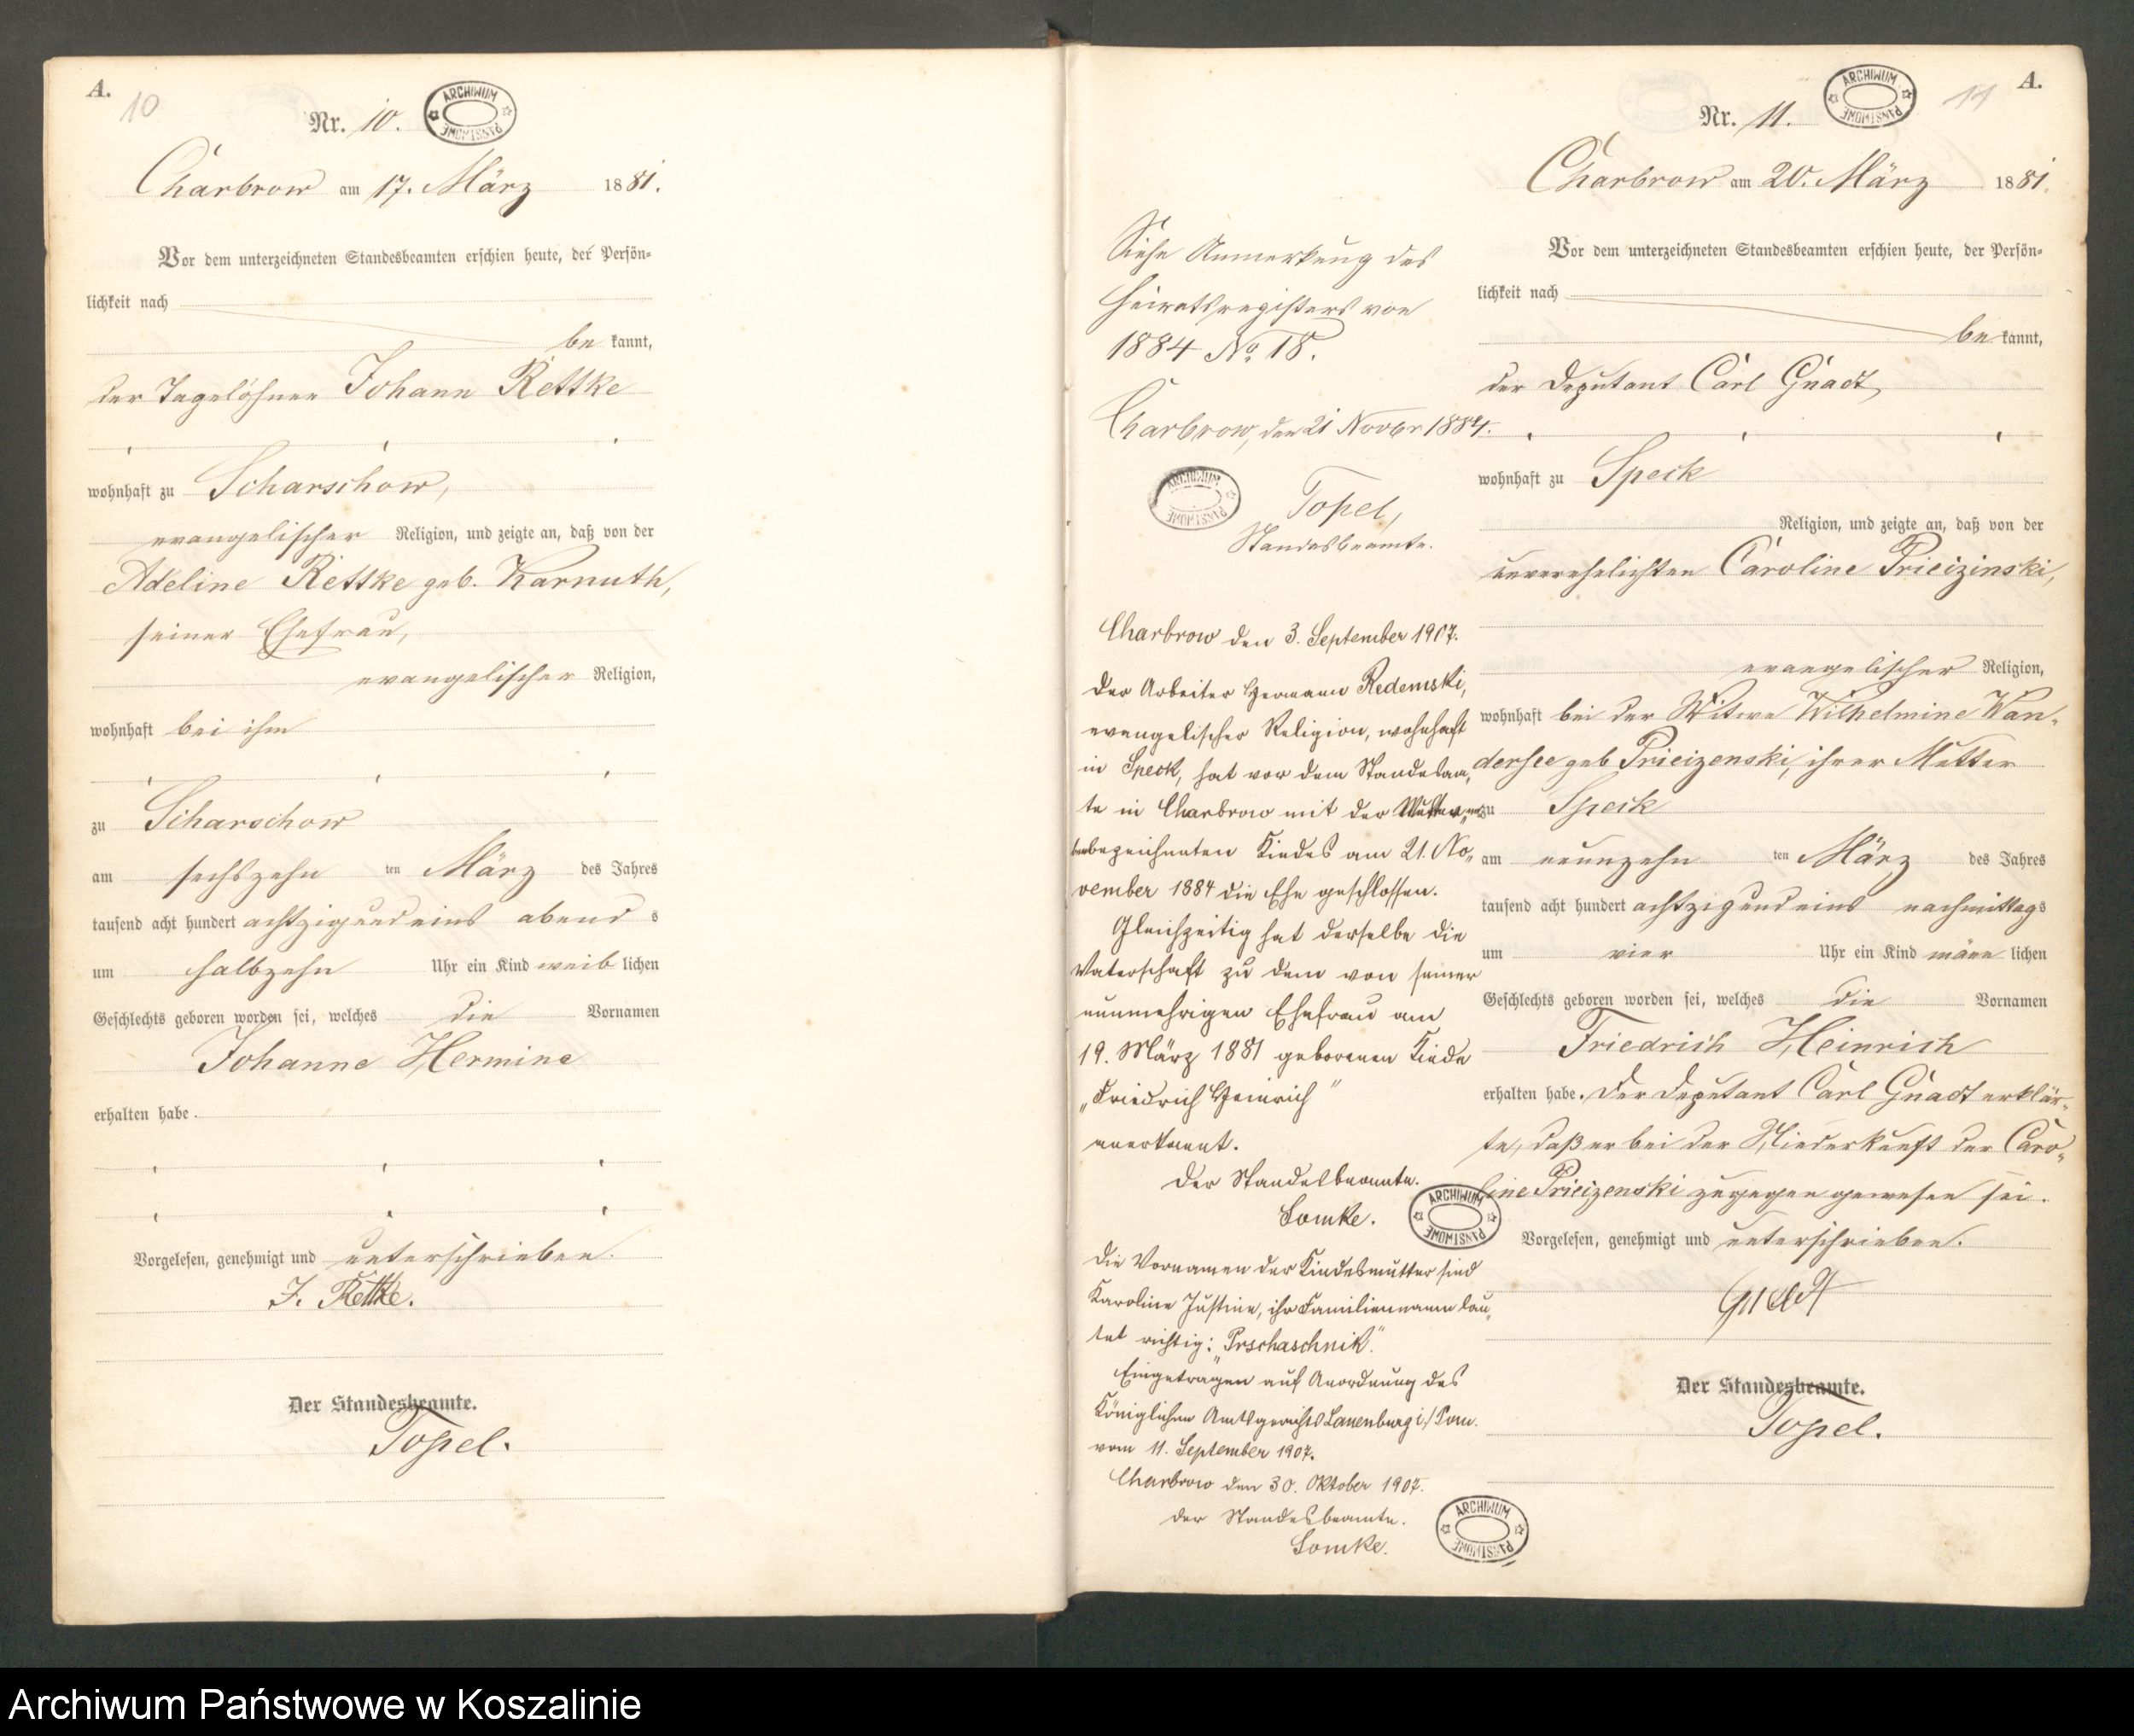 A.
10
Nr. 10.
ARCHIWUM PAŃSTWOWE
Charbrow am 17. März 1881.
Vor dem unterzeichneten Standesbeamten erschien heute, der Persön-
lichkeit nach
be kannt,
der Tagelöhner Johann Rettke
wohnhaft zu Scharschow,
evangelischer Religion, und zeigte an, daß von der
Adeline Rettke geb. Karnuth,
seiner Ehefrau,
evangelischer Religion,
wohnhaft bei ihm
zu Scharschow
am sechszehn ten März des Jahres
tausend acht hundert achtzig und eins abend s
um halbzehn Uhr ein Kind weib lichen
Geschlechts geboren worden sei, welches die Vornamen
Johanne Hermine
erhalten habe.
Vorgelesen, genehmigt und unterschrieben.
J. Rettke.
Der Standesbeamte.
Topel.
A.
11
Nr. 11.
ARCHIWUM PAŃSTWOWE
Charbrow am 20. März 1881.
Vor dem unterzeichneten Standesbeamten erschien heute, der Persön-
lichkeit nach
be kannt,
der Deputant Carl Gnadt,
wohnhaft zu Speck
Religion, und zeigte an, daß von der
unverehelichten Caroline Prieizinski,
evangelischer Religion,
wohnhaft bei der Witwe Wilhelmine Wan-
dersee geb Prieizenski, ihrer Mutter
zu Speck
am neunzehn ten März des Jahres
tausend acht hundert achtzig und eins nachmittag s
um vier Uhr ein Kind männ lichen
Geschlechts geboren worden sei, welches die Vornamen
Friedrich Heinrich
erhalten habe. Der Deputant Carl Gnadt erklär-
te, daß er bei der Niederkunft der Caro-
line Prieizenski zugegen gewesen sei.
Vorgelesen, genehmigt und unterschrieben.
Gnadt
Der Standesbeamte.
Topel.
Siehe Anmerkung des
Heiratsregisters von
1884 No 18.
Charbrow, den 21 Novbr 1884.
ARCHIWUM PAŃSTWOWE
Topel,
Standesbeamte.
Charbrow den 3. September 1907.
Der Arbeiter Hermann Redemski,
evangelischer Religion, wohnhaft
in Speck, hat vor dem Standesam-
te in Charbrow mit der Mutter ne-
benbezeichneten Kindes am 21. No-
vember 1884 die Ehe geschlossen.
Gleichzeitig hat derselbe die
Vaterschaft zu dem von seiner
nunmehrigen Ehefrau am
19. März 1881 geborenen Kinde
„Friedrich Heinrich"
anerkannt.
Der Standesbeamte.
Lomke.
ARCHIWUM PAŃSTWOWE
Die Vornamen der Kindesmutter sind
Karoline Justine, ihr Familienname lau-
tet richtig: „Prschaschnik".
Eingetragen auf Anordnung des
Königlichen Amtsgerichts Lauenburg i/Pom.
vom 11. September 1907.
Charbrow den 30. Oktober 1907.
Der Standesbeamte.
Lomke.
ARCHIWUM PAŃSTWOWE
Archiwum Państwowe w Koszalinie